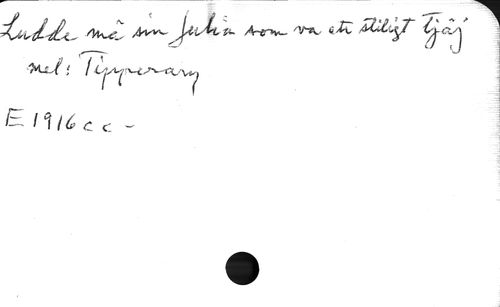 Ludde må sin Julia som va ett stiligt tjåj
mel: Tipperary
E 1916 c c -